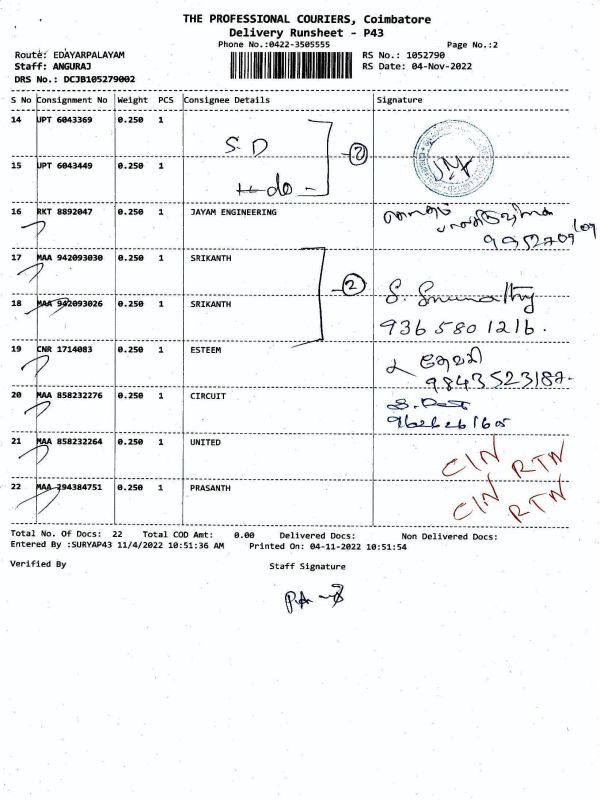 THE PROFESSIONAL COURIERS, Coimbatore
Delivery Runsheet - P43
Phone No.:0422-3505555 Page No.:2
Route: EDAYARPALAYAM RS No.: 1052790
Staff: ANGURAJ RS Date: 04-Nov-2022
DRS No.: DCJB105279002
S No Consignment No Weight PCS Consignee Details Signature
14 UPT 6043369 0.250 1
S.D
2
15 UPT 6043449 0.250 1
16 RKT 8892047 0.250 1 JAYAM ENGINEERING
17 MAA 942093030 0.250 1 SRIKANTH
2
18 MAA 942093026 0.250 1 SRIKANTH
9365801216.
19 CNR 1714083 0.250 1 ESTEEM
தேவி
9843523187.
20 MAA 858232276 0.250 1 CIRCUIT
21 MAA 858232264 0.250 1 UNITED
C/N RTN
22 MAA 294384751 0.250 1 PRASANTH
C/N RTN
Total No. Of Docs: 22 Total COD Amt: 0.00 Delivered Docs: Non Delivered Docs:
Entered By :SURYAP43 11/4/2022 10:51:36 AM Printed On: 04-11-2022 10:51:54
Verified By Staff Signature